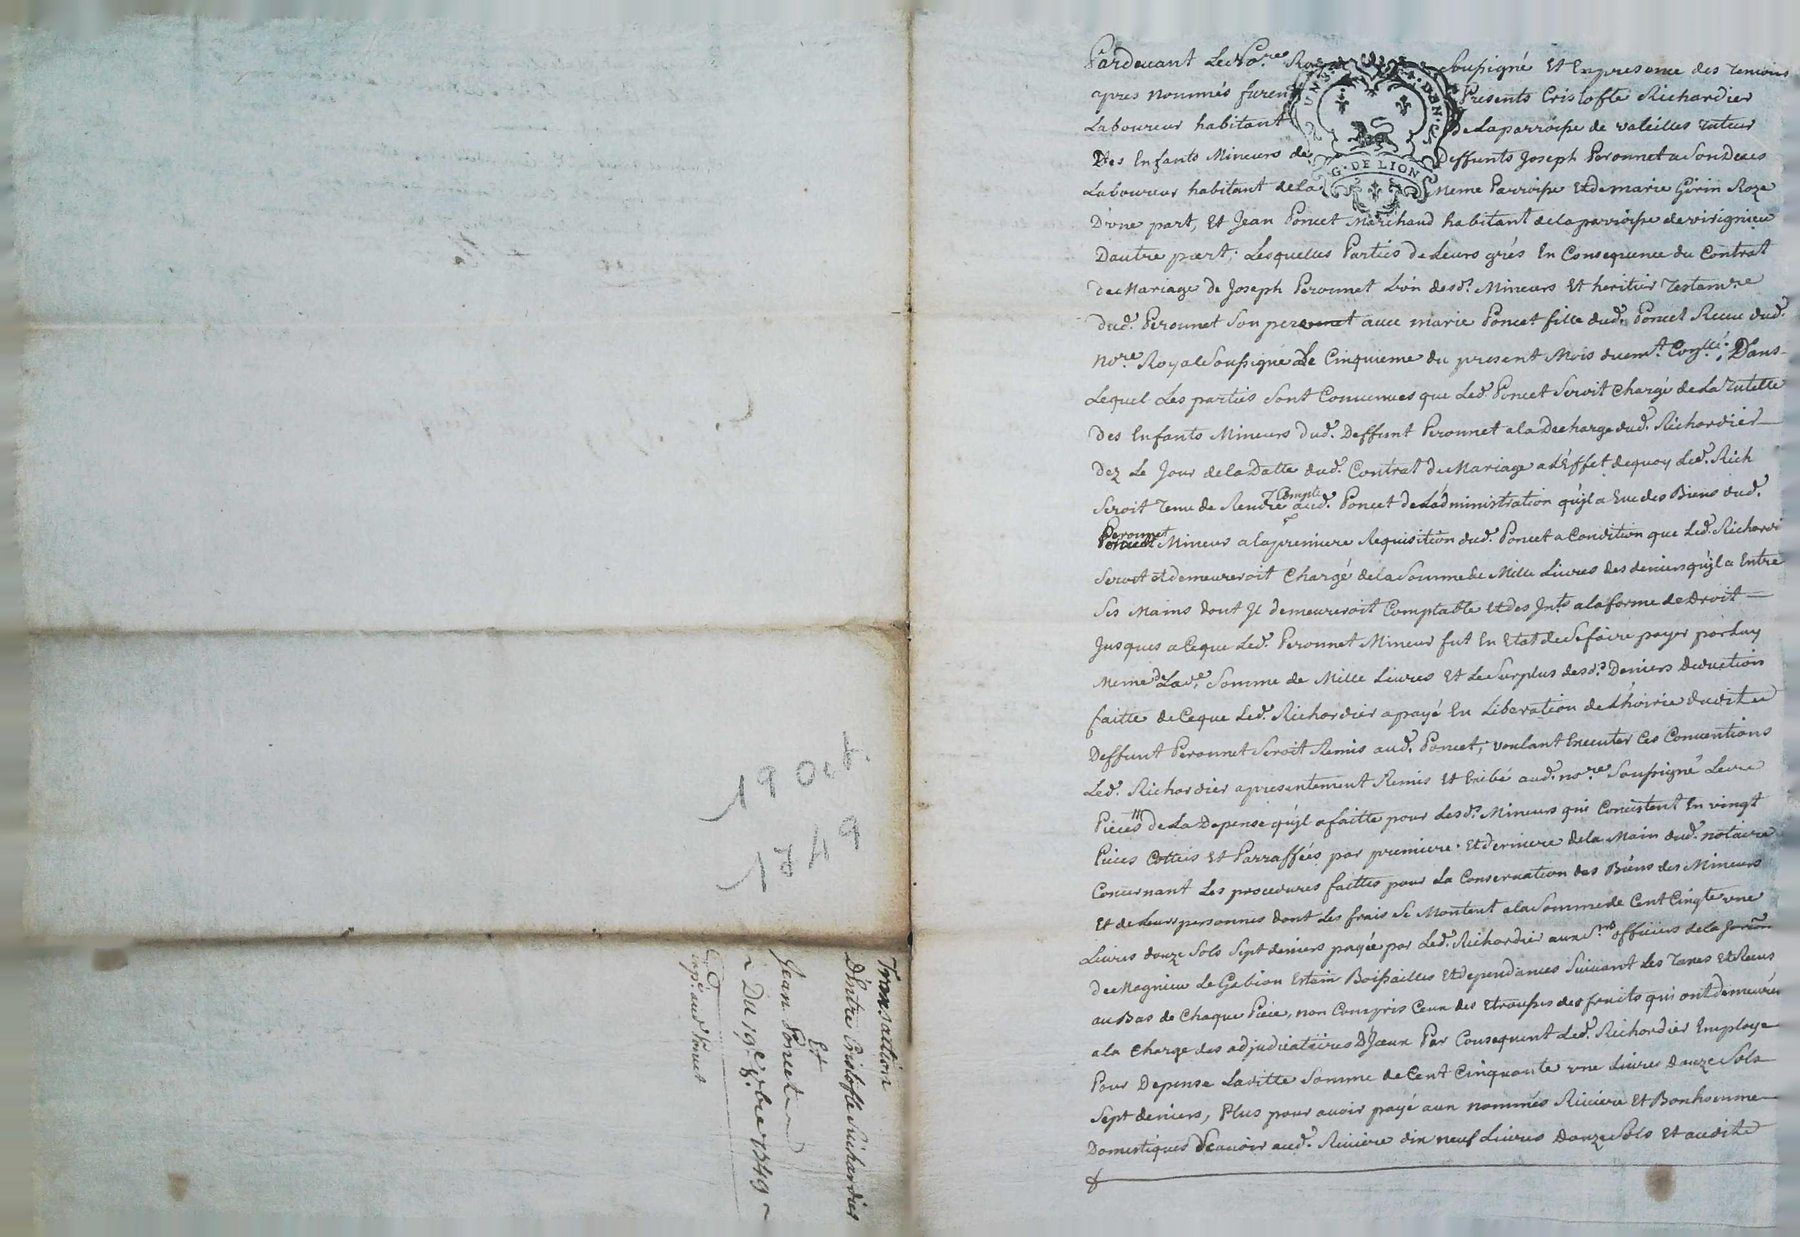 Pardevant Le No.re Royal Soussigné Et En presence des Temoins
apres nommés furent Presents Cristofle Richardier
Laboureur habitant De Laparroisse de valeilles Tuteur
Des Enfants Mineurs de Deffunts Joseph Peronnet a Son Deces
Laboureur habitant de la Meme Parroisse Et de marie Gerin Roze
Dvne part, Et Jean Poncet Marchand habitant de la parroisse de virignieu
Dautre part; Lesquelles Parties de Leurs grés En Consequence du Contrat
de Mariage de Joseph Peronnet L'un desd.s Mineurs Et heritier Testam.re
dud.t Peronnet Son pere avec marie Poncet fille dud.t Poncet Receu dud.t
No.re Royal Soussigné Le Cinquieme du present Mois Dans
Lequel Les parties Sont Convenues que Led.t Poncet Seroit Chargé de La Tutelle
des Enfants Mineurs dud.t Deffunt Peronnet a la Decharge dud.t Richardier
dez Le Jour de la Datte dud.t Contrat de Mariage a L'Effet dequoy Led.t Rich
Seroit Tenu de Rendre Compte aud.t Poncet de L'administration qu'jl a Eue des Biens dud.t
Peronnet Mineur a la premiere Requisition dud.t Poncet a Condition que Led.t Richardi
Seroit et demeureroit Chargé de la Somme de Mille Livres des deniers qu'jl a Entre
Ses Mains dont Jl demeureroit Comptable Et des Jnt.s a la forme de Droit
Jusques a Ceque Led.t Peronnet Mineur fut En Etat de Se faire payer par Luy
Meme de Lad.e Somme de Mille Livres Et Le Surplus desd.s Deniers Deduction
faitte de Ceque Led.t Richardier a payé En Liberation de L'hoirie dudit
Deffunt Peronnet Seroit Remis aud.t Poncet; voulant Executer Ces Conventions
Led.t Richardier a presentement Remis Et Exibé aud.t no.re Soussigné Les
Pieces de La Depense qu'jl a faitte pour Lesd.s Mineurs qui Concistent En vingt
Pieces Cottéés Et Parraffées par premiere Et derniere de la Main dud.t notaire
Concernant Les procedures faittes pour La Conservation des Biens des Mineurs
Et de Leurs personnes dont Les frais Se Montent a la Somme de Cent Cinq.te vne
Livres douze Sols Sept deniers payée par Led.t Richardier aux S.rs officiers de la
de Magnieu Le Gabion Boissailles Et dependances Suivant Les Taxes Et Receus
au Bas de Chaque Piece, non Compris Ceux des Etrousses des fruits qui ont demeurés
a la Charge des adjudicataires Par Consequent Led.t Richardier Employe
Pour Depense Laditte Somme de Cent Cinquante vne Livres Douze Sols
Sept deniers, Plus pour avoir payé aux nommés Riviere Et Bonhomme
Domestiques Scavoir aud.t Riviere dix neuf Livres Douze Sols Et audit
G. DE LION
19 Oct.
1749
Transaction
D'Entre Cristofle Richardier
Et
Jean Poncet
Du 19.e 8.bre 1749
aud.t Poncet